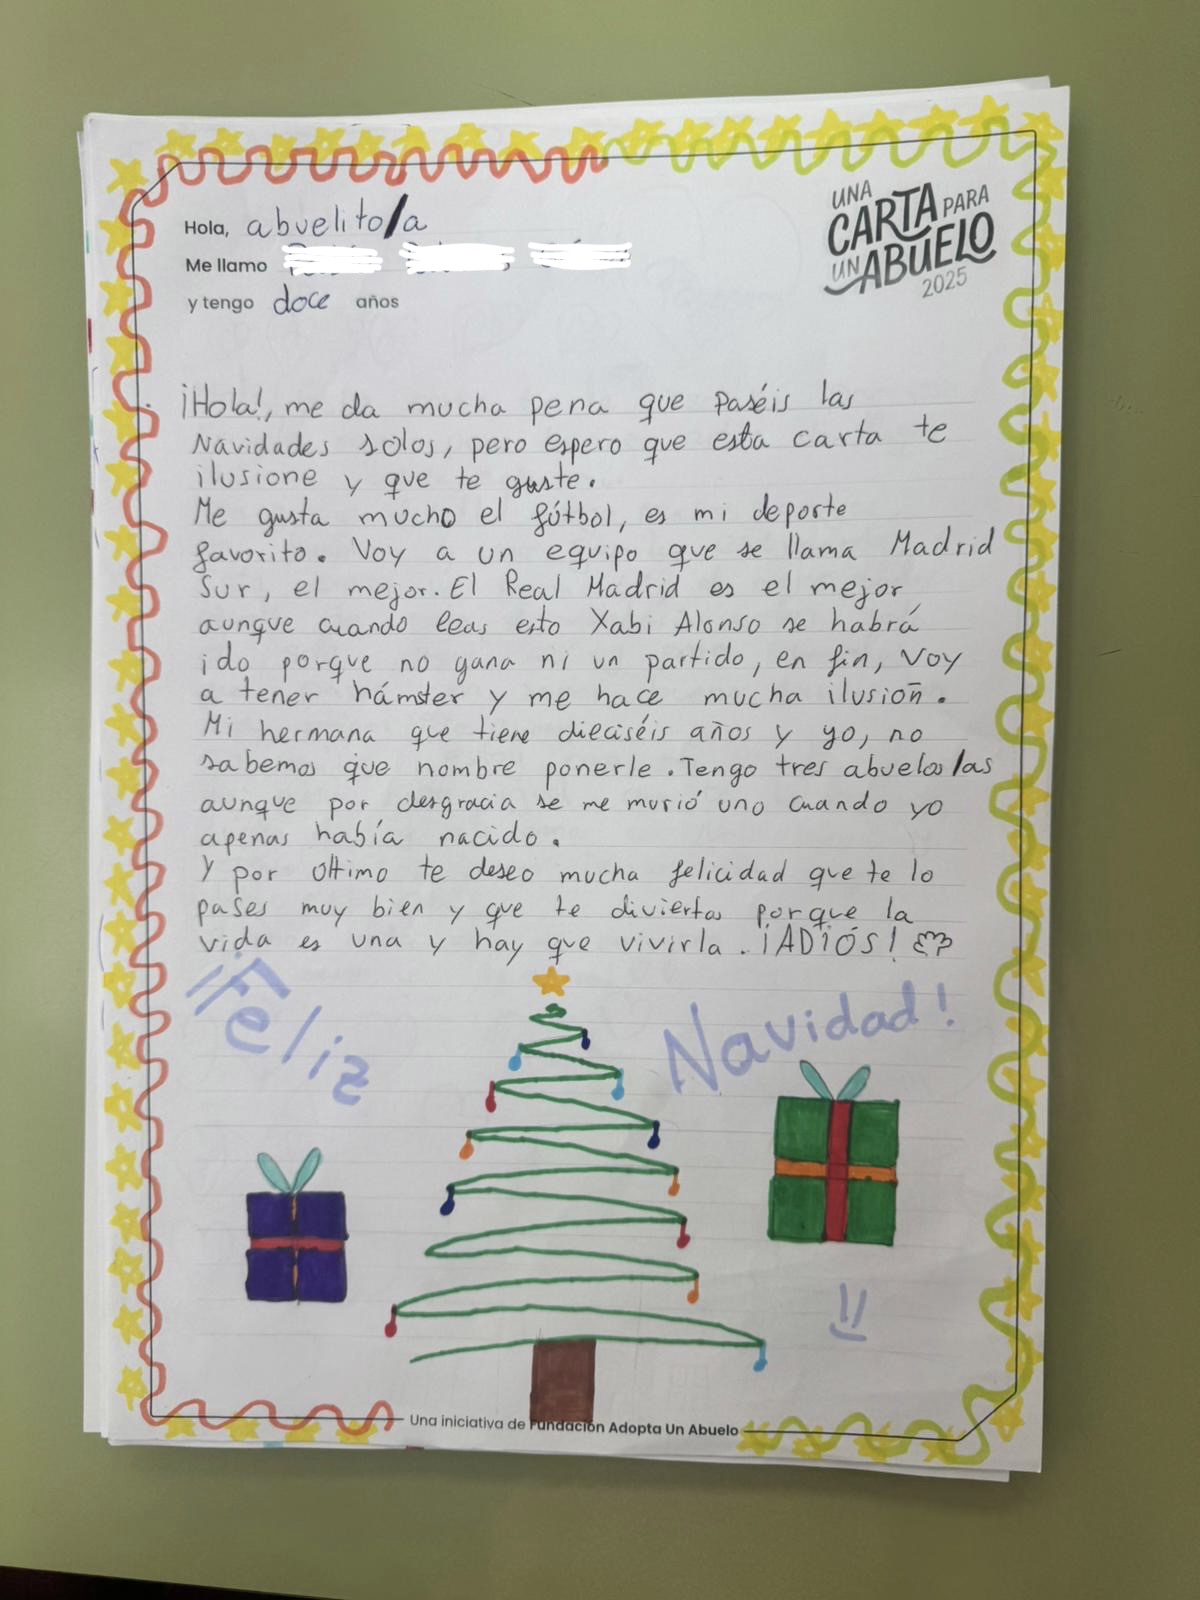 UNA
CARTA PARA
UN ABUELO
2025
Hola, abuelito/a
Me llamo
y tengo doce años
¡Hola!, me da mucha pena que paséis las
Navidades solos, pero espero que esta carta te
ilusione y que te guste.
Me gusta mucho el fútbol, es mi deporte
favorito. Voy a un equipo que se llama Madrid
Sur, el mejor. El Real Madrid es el mejor
aunque cuando leas esto Xabi Alonso se habrá
ido porque no gana ni un partido, en fin, voy
a tener hámster y me hace mucha ilusión.
Mi hermana que tiene dieciséis años y yo, no
sabemos que nombre ponerle. Tengo tres abuelos/as
aunque por desgracia se me murió uno cuando yo
apenas había nacido.
Y por último te deseo mucha felicidad que te lo
pases muy bien y que te diviertas porque la
vida es una y hay que vivirla. ¡ADIÓS!
¡Feliz Navidad!
Una iniciativa de Fundación Adopta Un Abuelo